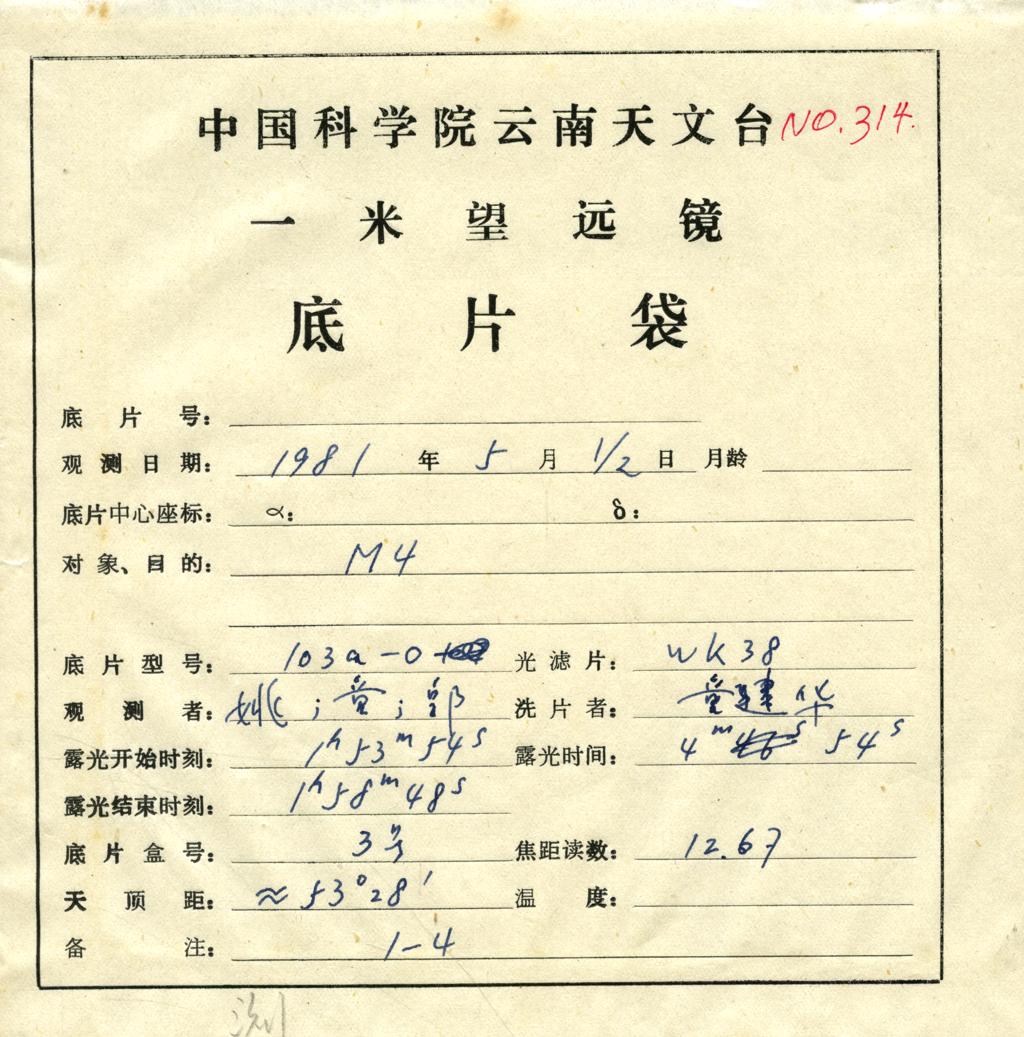 中国科学院云南天文台 NO.314.
一米望远镜
底片袋
底片号：
观测日期： 1981 年 5 月 1/2 日 月龄
底片中心座标： α： δ：
对象、目的： M4
底片型号： 103a-O 光滤片： WK38
观测者： 姚；童；郭 洗片者： 童建华
露光开始时刻： 1h53m54s 露光时间： 4m 54s
露光结束时刻： 1h58m48s
底片盒号： 3号 焦距读数： 12.67
天顶距： ≈53°28′ 温度：
备注： 1-4